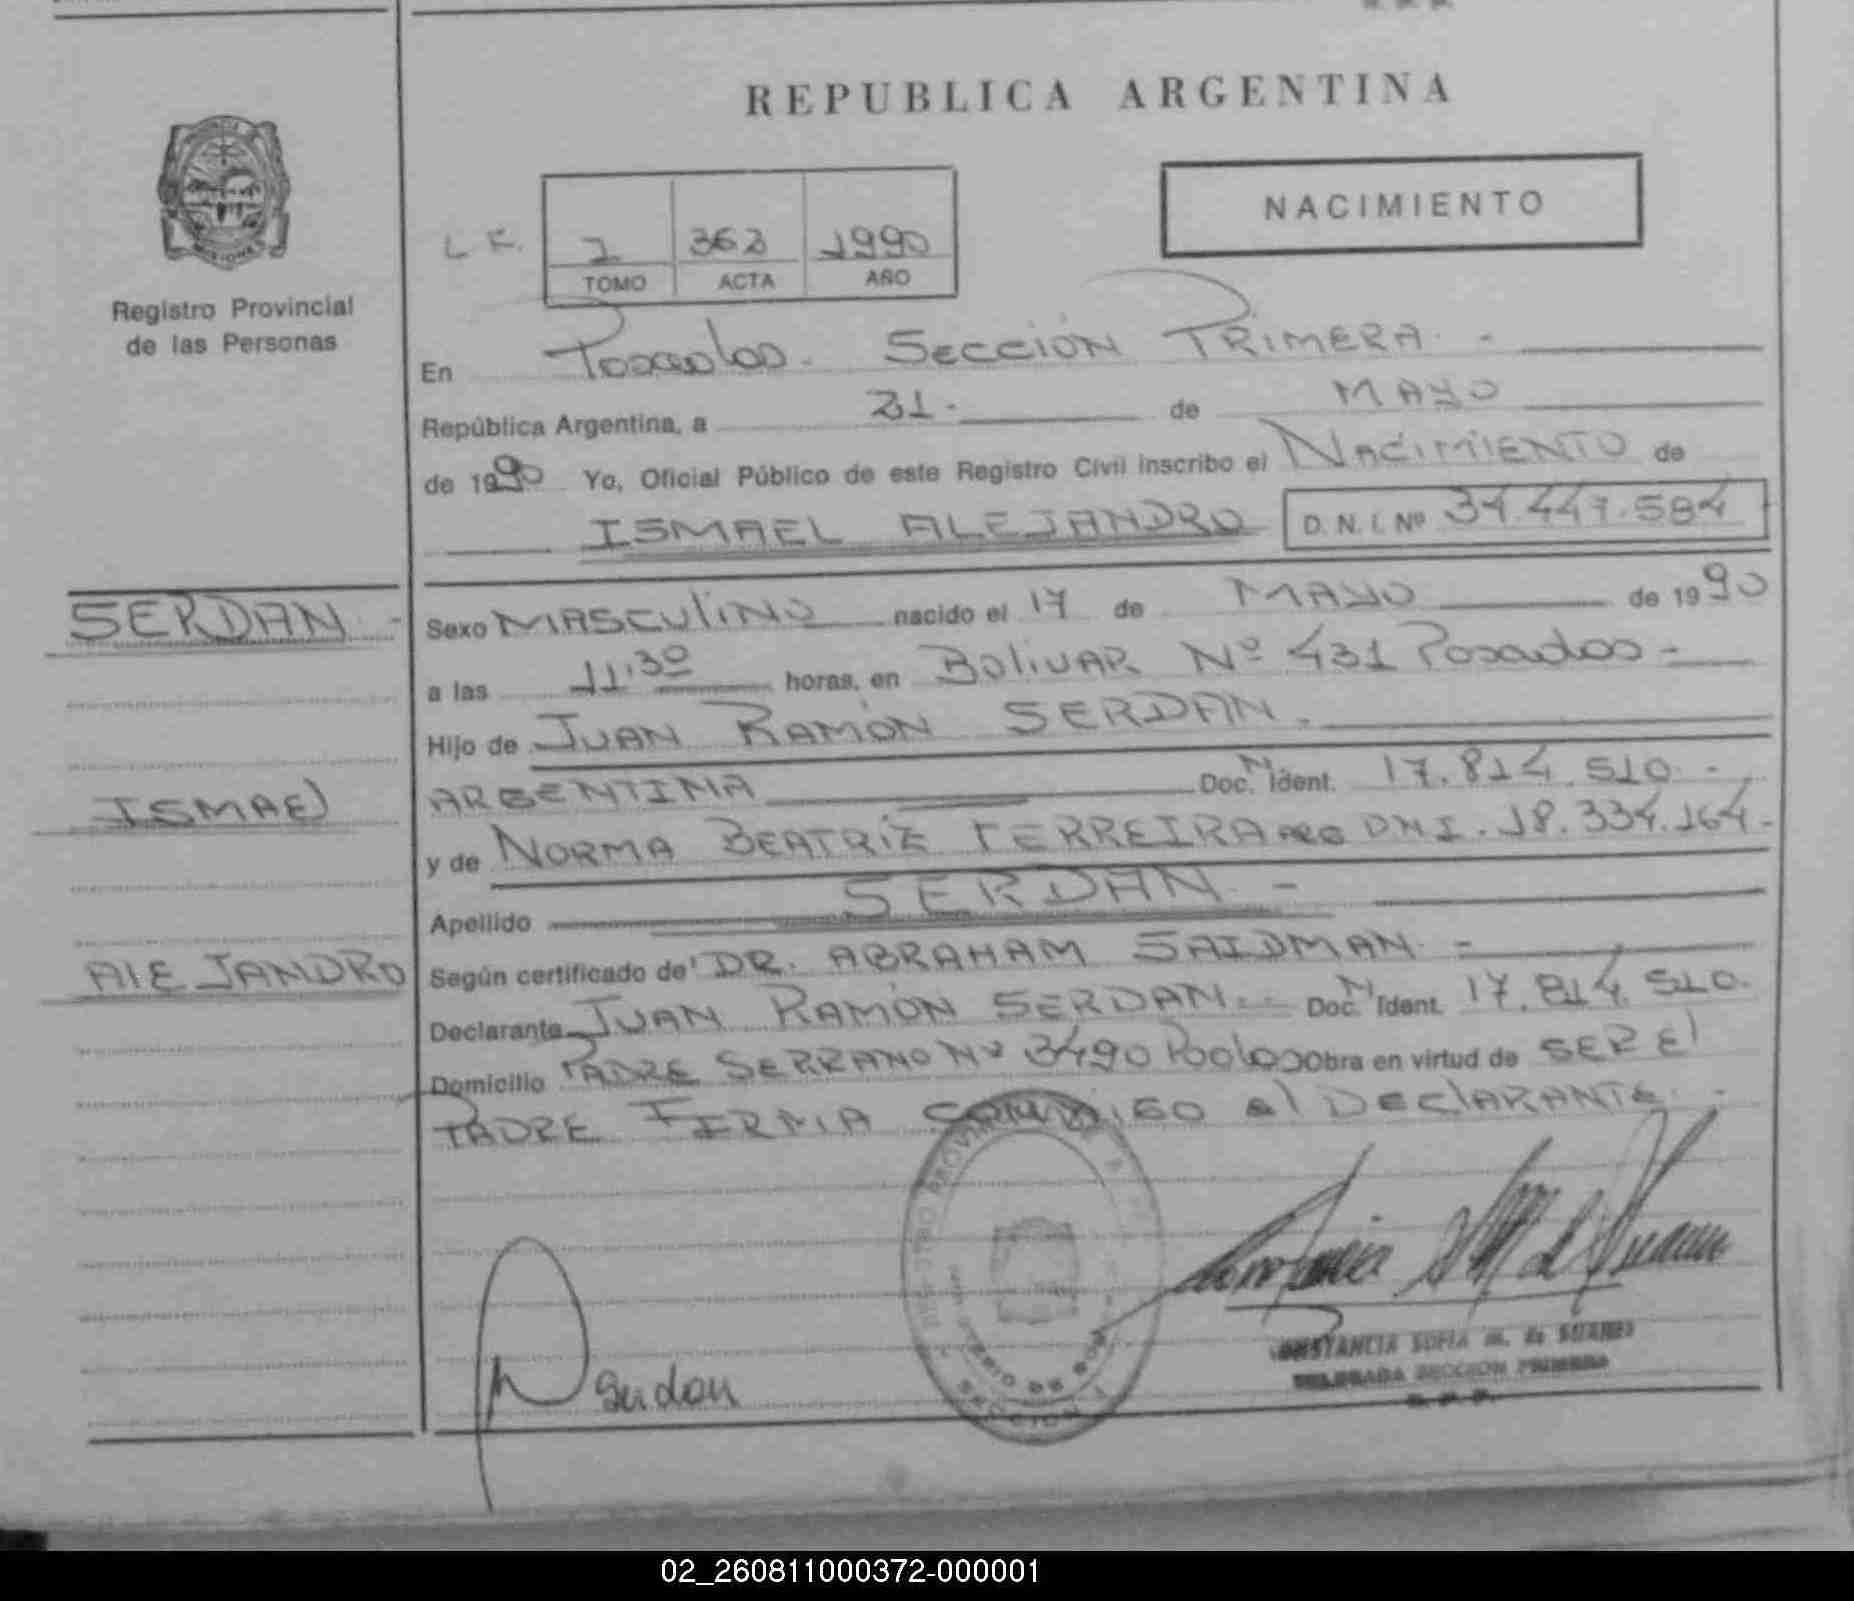 REPUBLICA ARGENTINA
NACIMIENTO
L R. 1 363 1990
TOMO ACTA AÑO
Registro Provincial
de las Personas
En Posadas. Sección PRIMERA. -
República Argentina, a 21. de MAYO
de 1990 Yo, Oficial Público de este Registro Civil inscribo el NACIMIENTO de
ISMAEL ALEJANDRO D.N.I. Nº 34.447.584
SERDAN -
Sexo MASCULINO nacido el 17 de MAYO de 1990
a las 11.30 horas, en BOLIVAR Nº 431 Posadas -
Hijo de JUAN RAMÓN SERDAN.
ISMAEl
ARGENTINA Doc. N Ident. 17.814.510. -
y de NORMA BEATRIZ FERREIRA DNI. 18.334.164-
Apellido SERDAN -
AlEJANDRO
Según certificado de DR. ABRAHAM SAIDMAN -
Declarante JUAN RAMÓN SERDAN. - Doc. N Ident. 17.814.510.
Domicilio PADRE SERRANO Nº 3490 Obra en virtud de SER El
PADRE FIRMA CONMIGO el DEClARANTE. -
Serdan
SECCION
CONSTANCIA SOFIA M. de SUAREZ
DELEGADA SECCION PRIMERA
R. P. P.
02_260811000372-000001